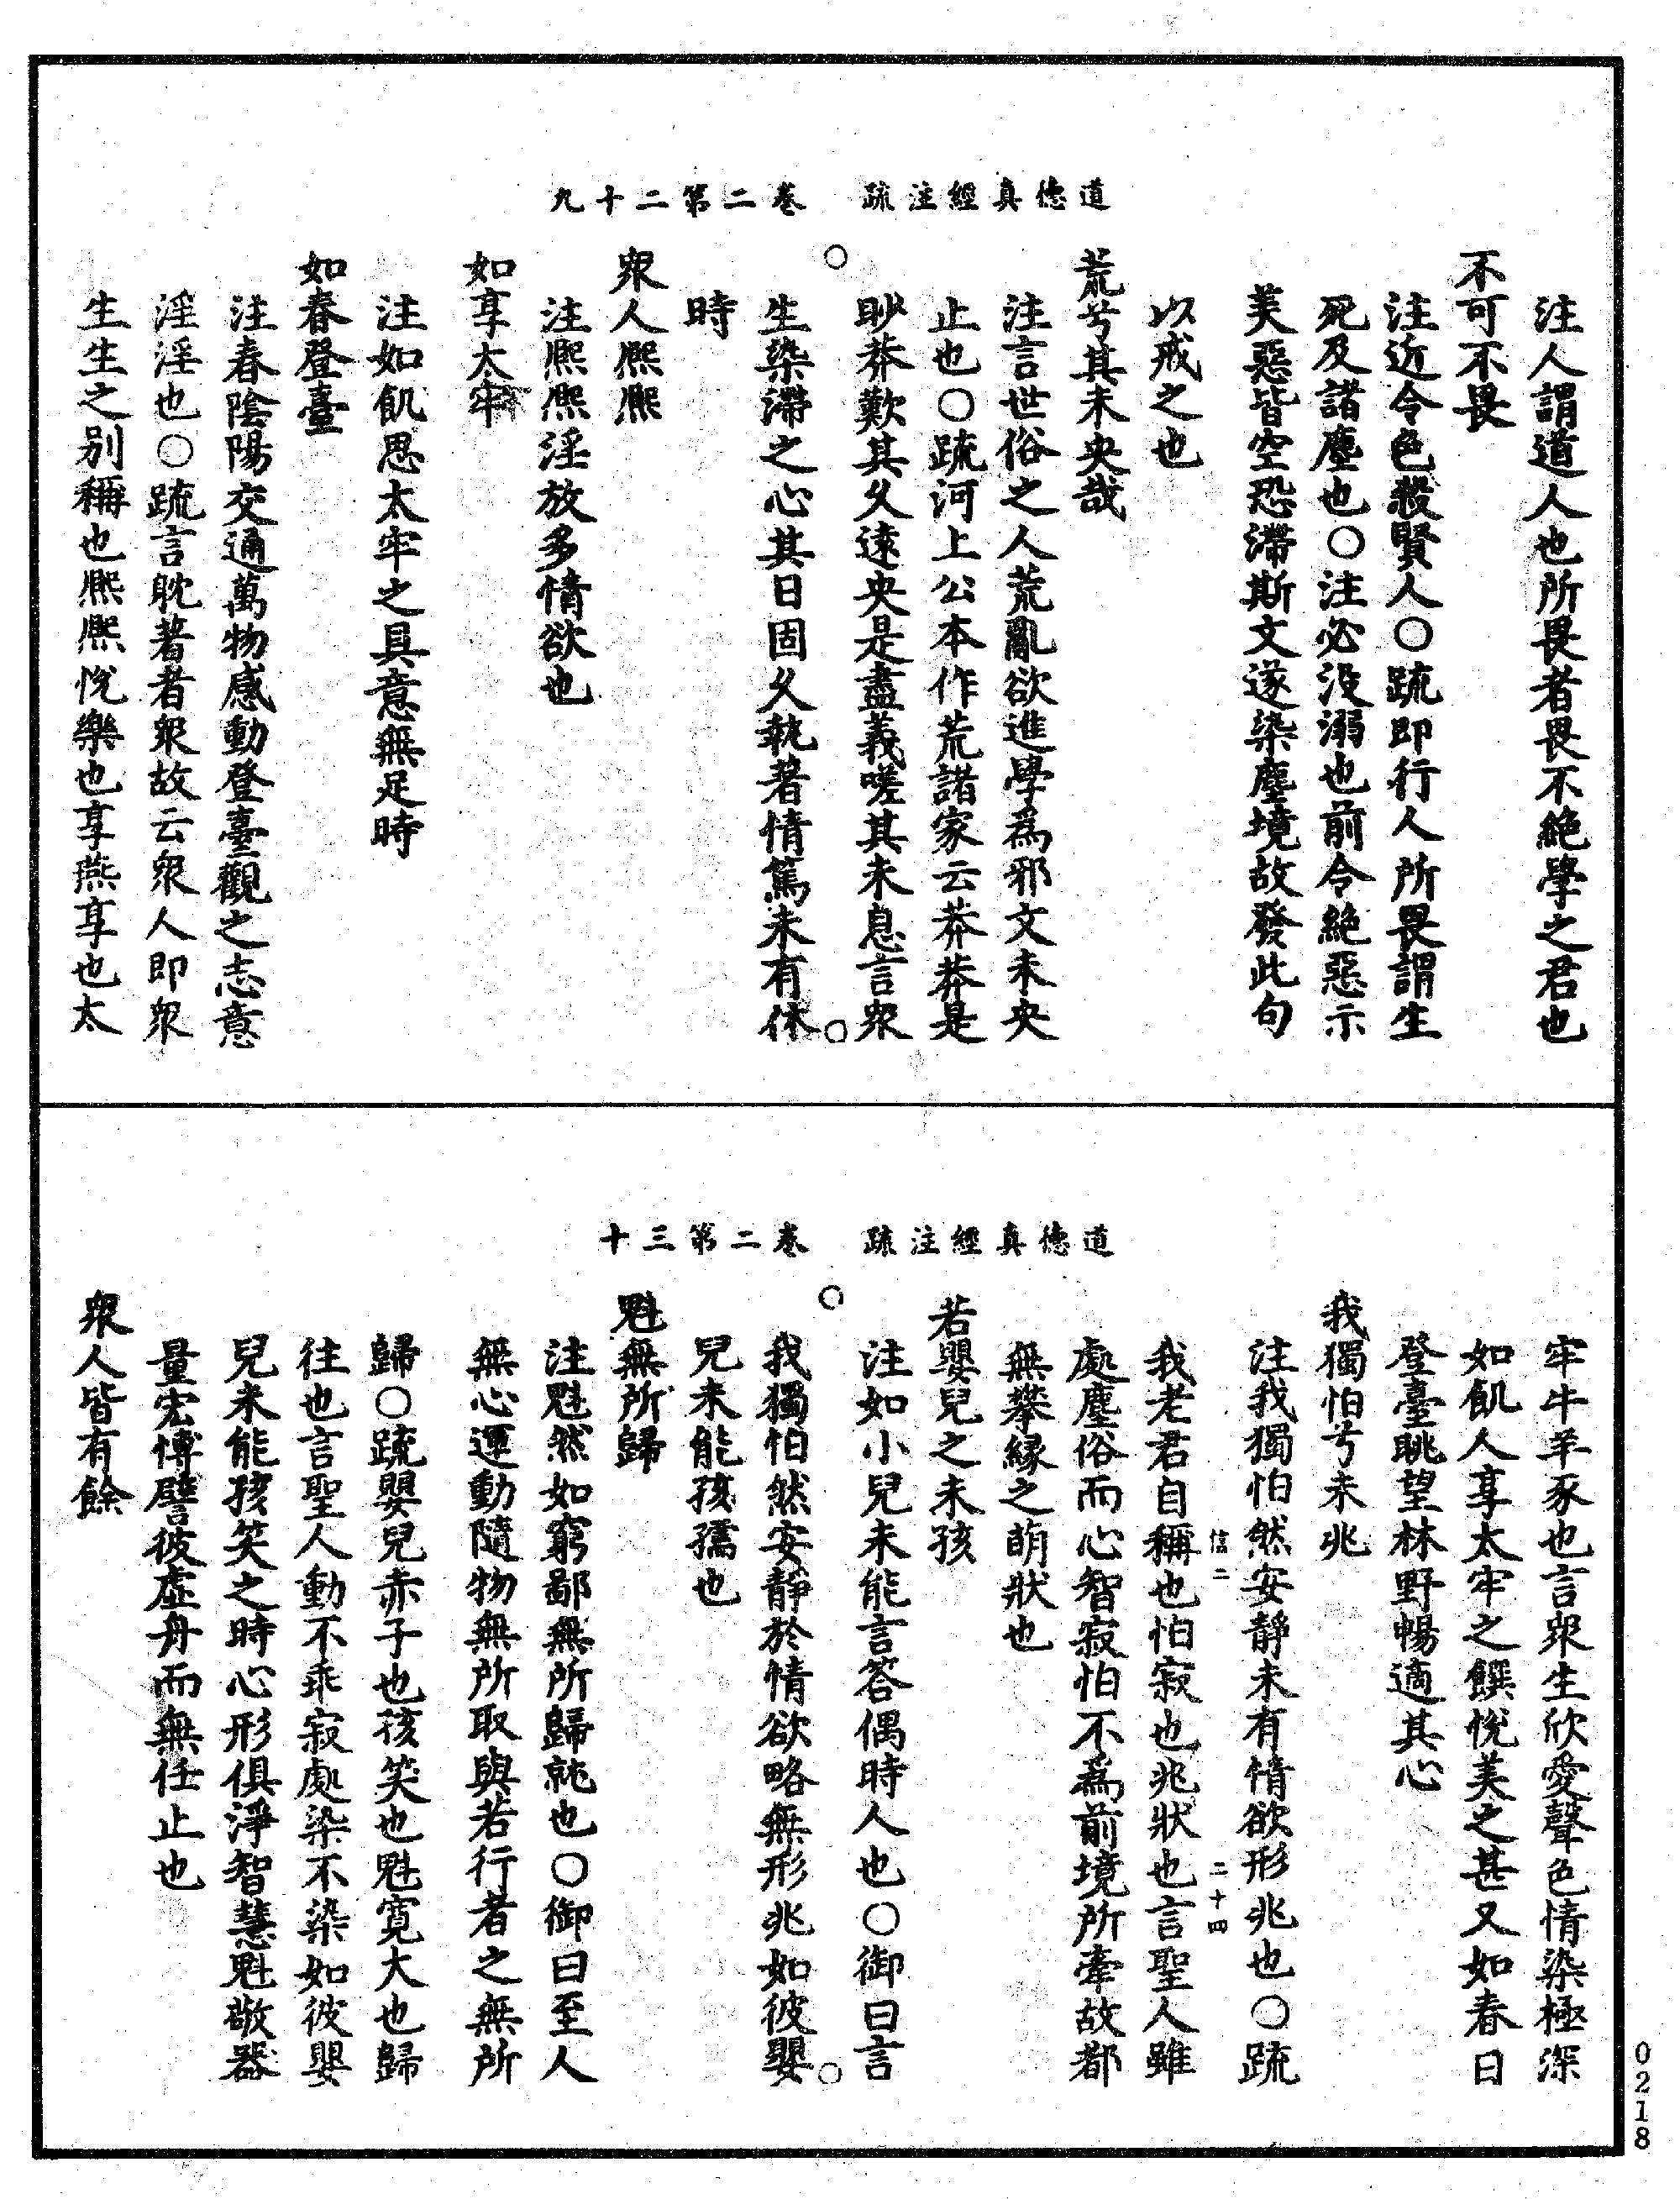 道德真經注疏　卷二第二十九
注人謂道人也所畏者畏不絕學之君也
不可不畏
注近令色殺賢人○疏即行人所畏謂生
死及諸塵也○注必沒溺也前令絕惡示
美惡皆空恐滯斯文遂染塵境故發此句
以戒之也
荒兮其未央哉
注言世俗之人荒亂欲進學為邪文未央
止也○疏河上公本作荒諸家云莽莽是
眇莽歎其久遠央是盡義嗟其未息言眾
生染滯之心其日固久執著情篤未有休
時
眾人熙熙
注熙熙淫放多情欲也
如享太牢
注如飢思太牢之具意無足時
如春登臺
注春陰陽交通萬物感動登臺觀之志意
淫淫也○疏言耽著者眾故云眾人即眾
生生之別稱也熙熙悅樂也享燕享也太
道德真經注疏　卷二第三十
牢牛羊豕也言眾生欣愛聲色情染極深
如飢人享太牢之饌悅美之甚又如春日
登臺眺望林野暢適其心
我獨怕兮未兆
注我獨怕然安靜未有情欲形兆也○疏
信二　二十四
我老君自稱也怕怕寂也兆狀也言聖人雖
處塵俗而心智寂怕不為前境所牽故都
無攀緣之萌狀也
若嬰兒之未孩
注如小兒未能言答偶時人也○御曰言
我獨怕然安靜於情欲略無形兆如彼嬰
兒未能孩孺也
魁無所歸
注魁然如窮鄙無所歸就也○御曰至人
無心運動隨物無所取與若行者之無所
歸○疏嬰兒赤子也孩笑也魁寬大也歸
往也言聖人動不乖寂處染不染如彼嬰
兒未能孩笑之時心形俱淨智慧魁敞器
量宏博譬彼虛舟而無任止也
眾人皆有餘
0218